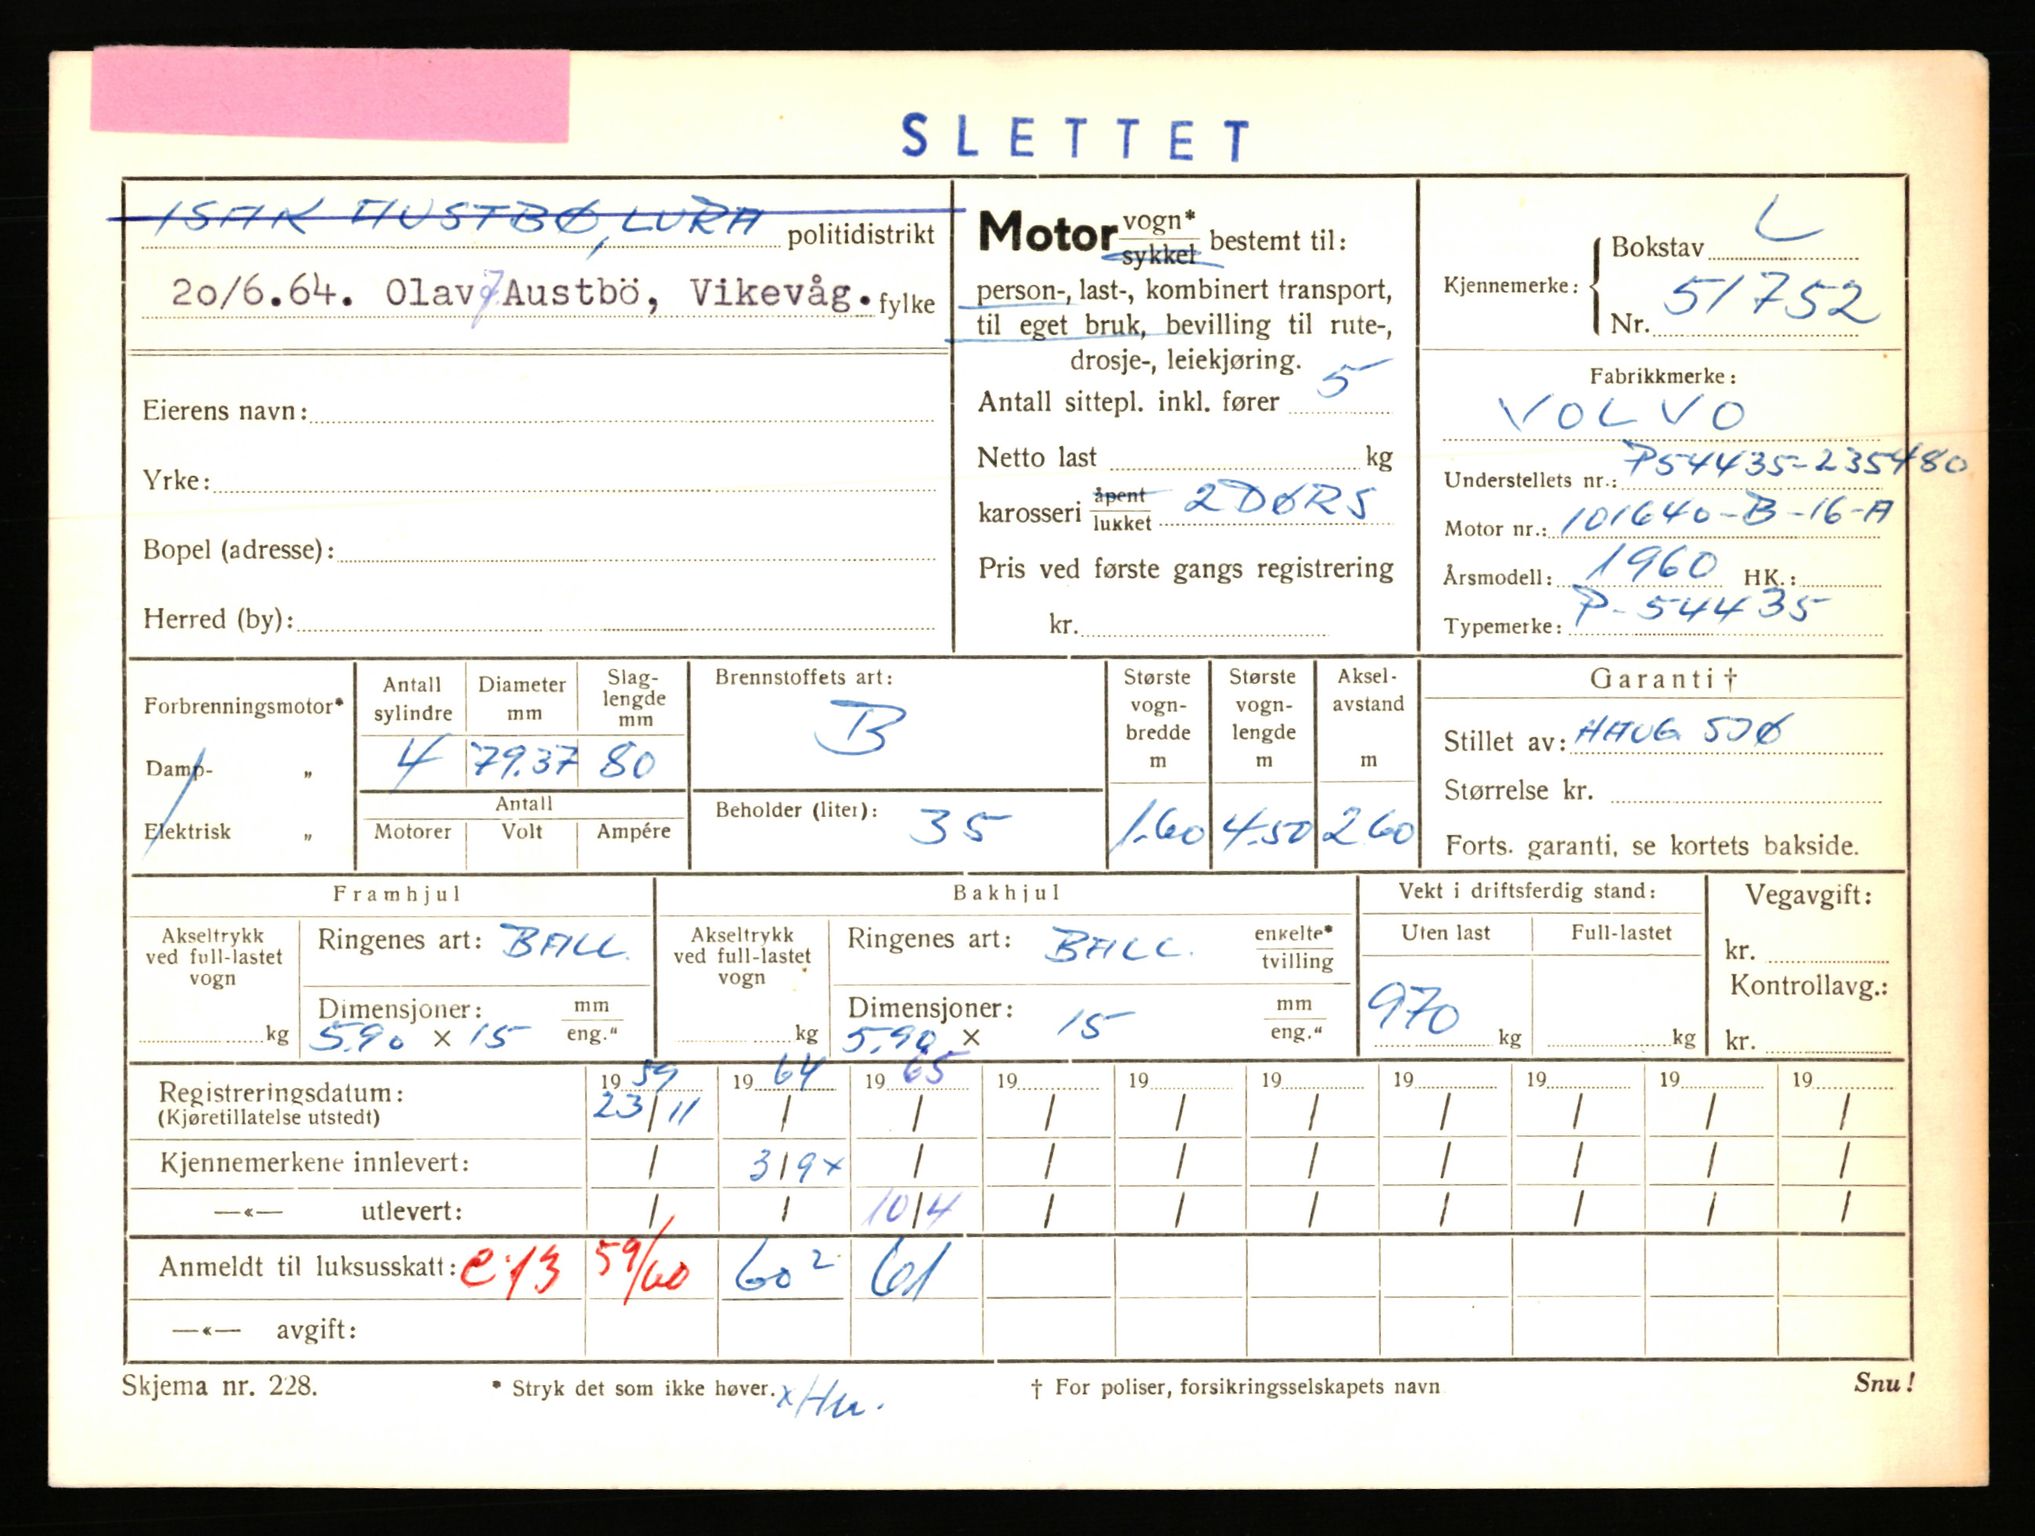 SLETTET
ISAK AUSTBØ, LURA politidistrikt
20/6.64. Olav Austbö, Vikevåg. fylke
Eierens navn:
Yrke:
Bopel (adresse):
Herred (by):
Motor vogn* / sykkel bestemt til:
person-, last-, kombinert transport,
til eget bruk, bevilling til rute-,
drosje-, leiekjøring.
Antall sittepl. inkl. fører 5
Netto last kg
karosseri åpent / lukket 2 DØRS
Pris ved første gangs registrering
kr.
Kjennemerke: Bokstav L
Nr. 51752
Fabrikkmerke:
VOLVO
Understellets nr.: P54435-235480
Motor nr.: 101640-B-16-A
Årsmodell: 1960 HK.:
Typemerke: P-54435
Forbrenningsmotor*
Damp- „
Elektrisk „
Antall sylindre 4
Diameter mm 79.37
Slaglengde mm 80
Antall
Motorer Volt Ampére
Brennstoffets art: B
Beholder (liter): 35
Største vognbredde m 1.60
Største vognlengde m 4.50
Akselavstand m 2.60
Garanti †
Stillet av: HAUGSJØ
Størrelse kr.
Forts. garanti, se kortets bakside.
Framhjul
Akseltrykk ved full-lastet vogn kg
Ringenes art: BALL.
Dimensjoner: mm / eng."
5.90 × 15
Bakhjul
Akseltrykk ved full-lastet vogn kg
Ringenes art: BALL. enkelte* / tvilling
Dimensjoner: mm / eng."
5.90 × 15
Vekt i driftsferdig stand:
Uten last Full-lastet
970 kg kg
Vegavgift:
kr.
Kontrollavg.:
kr.
Registreringsdatum: 19 59 19 64 19 65 19 19 19 19 19 19 19
(Kjøretillatelse utstedt) 23/11 / / / / / / / / /
Kjennemerkene innlevert: / 3/9x / / / / / / / /
—«— utlevert: / / 10/4 / / / / / / /
Anmeldt til luksusskatt: e 13 59/60 60² 61
—«— avgift:
Skjema nr. 228. * Stryk det som ikke høver. † For poliser, forsikringsselskapets navn Snu!